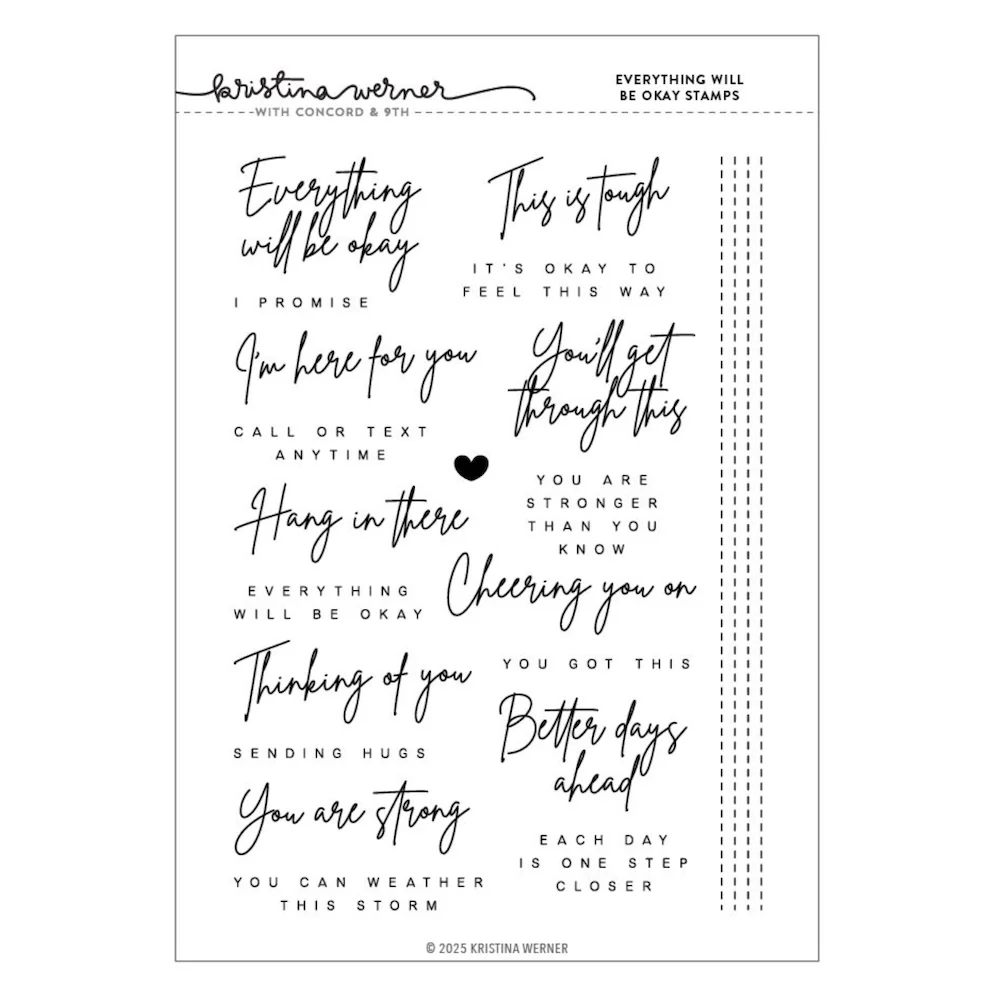 kristina werner
WITH CONCORD & 9TH
EVERYTHING WILL
BE OKAY STAMPS
Everything
will be okay
I PROMISE
I'm here for you
CALL OR TEXT
ANYTIME
Hang in there
EVERYTHING
WILL BE OKAY
Thinking of you
SENDING HUGS
You are strong
YOU CAN WEATHER
THIS STORM
This is tough
IT'S OKAY TO
FEEL THIS WAY
You'll get
through this
YOU ARE
STRONGER
THAN YOU
KNOW
Cheering you on
YOU GOT THIS
Better days
ahead
EACH DAY
IS ONE STEP
CLOSER
© 2025 KRISTINA WERNER